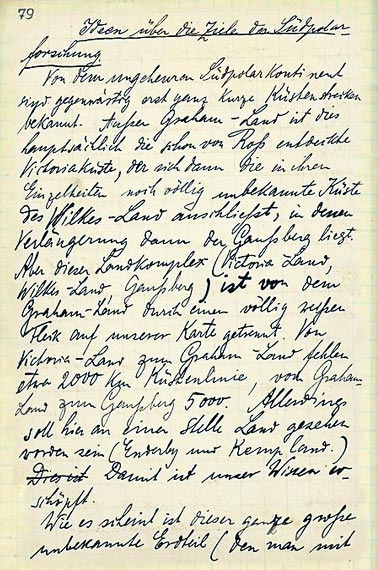 79
Ideen über die Ziele der Südpolar-
forschung
Von dem ungeheuren Südpolarkontinent
sind gegenwärtig erst ganz kurze Küstenstrecken
bekannt. Außer Graham-Land ist dies
hauptsächlich die schon von Roß entdeckte
Victoriaküste, der sich dann die in ihren
Einzelheiten noch völlig unbekannte Küste
des Wilkes-Land anschließt, in dessen
Verlängerung dann der Gaußberg liegt.
Aber dieser Landkomplex (Victoria-Land,
Wilkes-Land Gaußberg) ist von dem
Graham-Land durch einen völlig weißen
Fleck auf unserer Karte getrennt. Von
Victoria-Land zum Graham-Land fehlen
etwa 2000 km Küstenlinie, vom Graham-
Land zum Gaußberg 5000. Allerdings
soll hier an einer Stelle Land gesehen
worden sein (Enderby und Kemp land.)
Dies ist Damit ist unser Wissen er-
schöpft.
Wie es scheint ist dieser ganze große
unbekannte Erdteil (den man mit